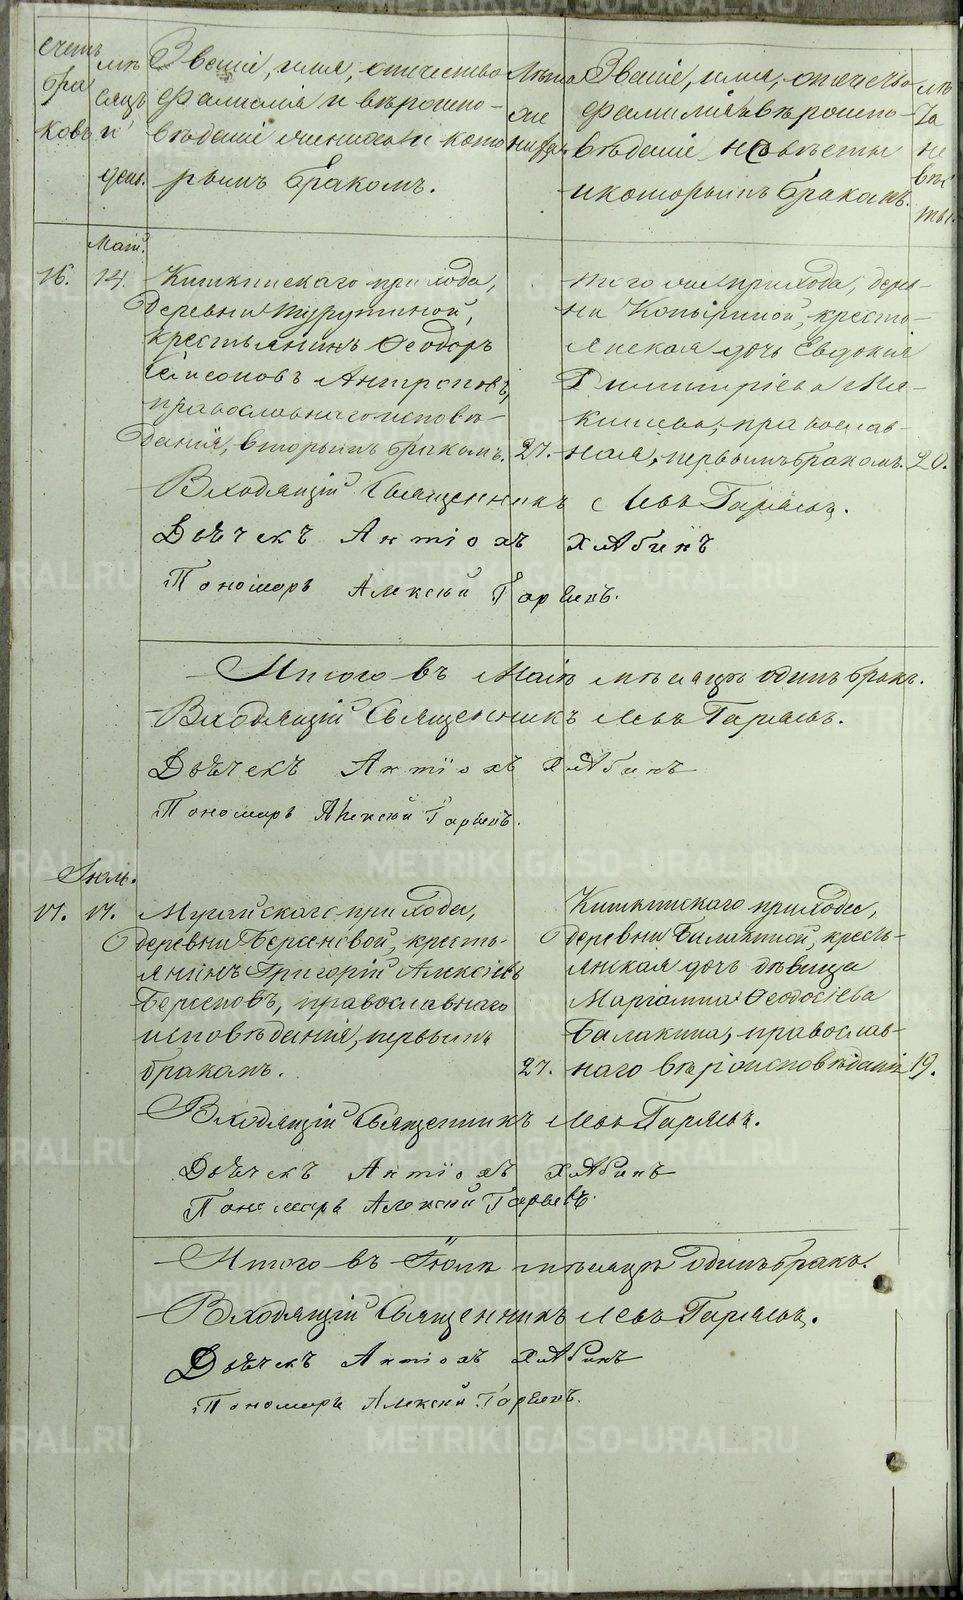 Счетъ браковъ
мѣсяцъ и день.
Званіе, имя, отчество
фамилія и вѣроиспо-
вѣданіе жениха и кото
рымъ бракомъ.
Лѣта
же
ниха
Званіе, имя, отчество
фамилія и вѣроиспо-
вѣданіе невѣсты
и которымъ бракомъ.
лѣ
та
не
вѣс
ты.
Маій.
16. 14.
Киткинскаго прихода,
деревни
крестьянинъ Ѳеодоръ
Антроповъ,
православнаго исповѣ-
данія, вторымъ бракомъ. 27.
того же прихода, дерев-
ни Копыриной, кресть-
янская дочь Евдокія
Димитріева
православ-
ная, первымъ бракомъ. 20.
Входящій Священникъ Левъ Гаряевъ.
Дьячекъ Антіохъ Хлабинъ
Пономарь Алексій Гаряевъ.
Итого въ Маіѣ мѣсяцѣ одинъ бракъ.
Входящій Священникъ Левъ Гаряевъ.
Дьячекъ Антіохъ Хлабинъ
Пономарь Алексій Гаряевъ.
Іюль.
17. 17.
Мугайскаго прихода,
деревни Берсеневой, кресть-
янинъ Григорій Алексіевъ
Берсеневъ, православнаго
исповѣданія, первымъ
бракомъ. 27.
Киткинскаго прихода,
деревни Балакиной, кресть-
янская дочь дѣвица
Маріамна Ѳеодосіева
Балакина, православ-
наго вѣроисповѣданія 19.
Входящій Священникъ Левъ Гаряевъ.
Дьячекъ Антіохъ Хлабинъ
Пономарь Алексій Гаряевъ.
Итого въ Іюлѣ мѣсяцѣ одинъ бракъ.
Входящій Священникъ Левъ Гаряевъ.
Дьячекъ Антіохъ Хлабинъ
Пономарь Алексій Гаряевъ.
METRIKI.GASO-URAL.RU